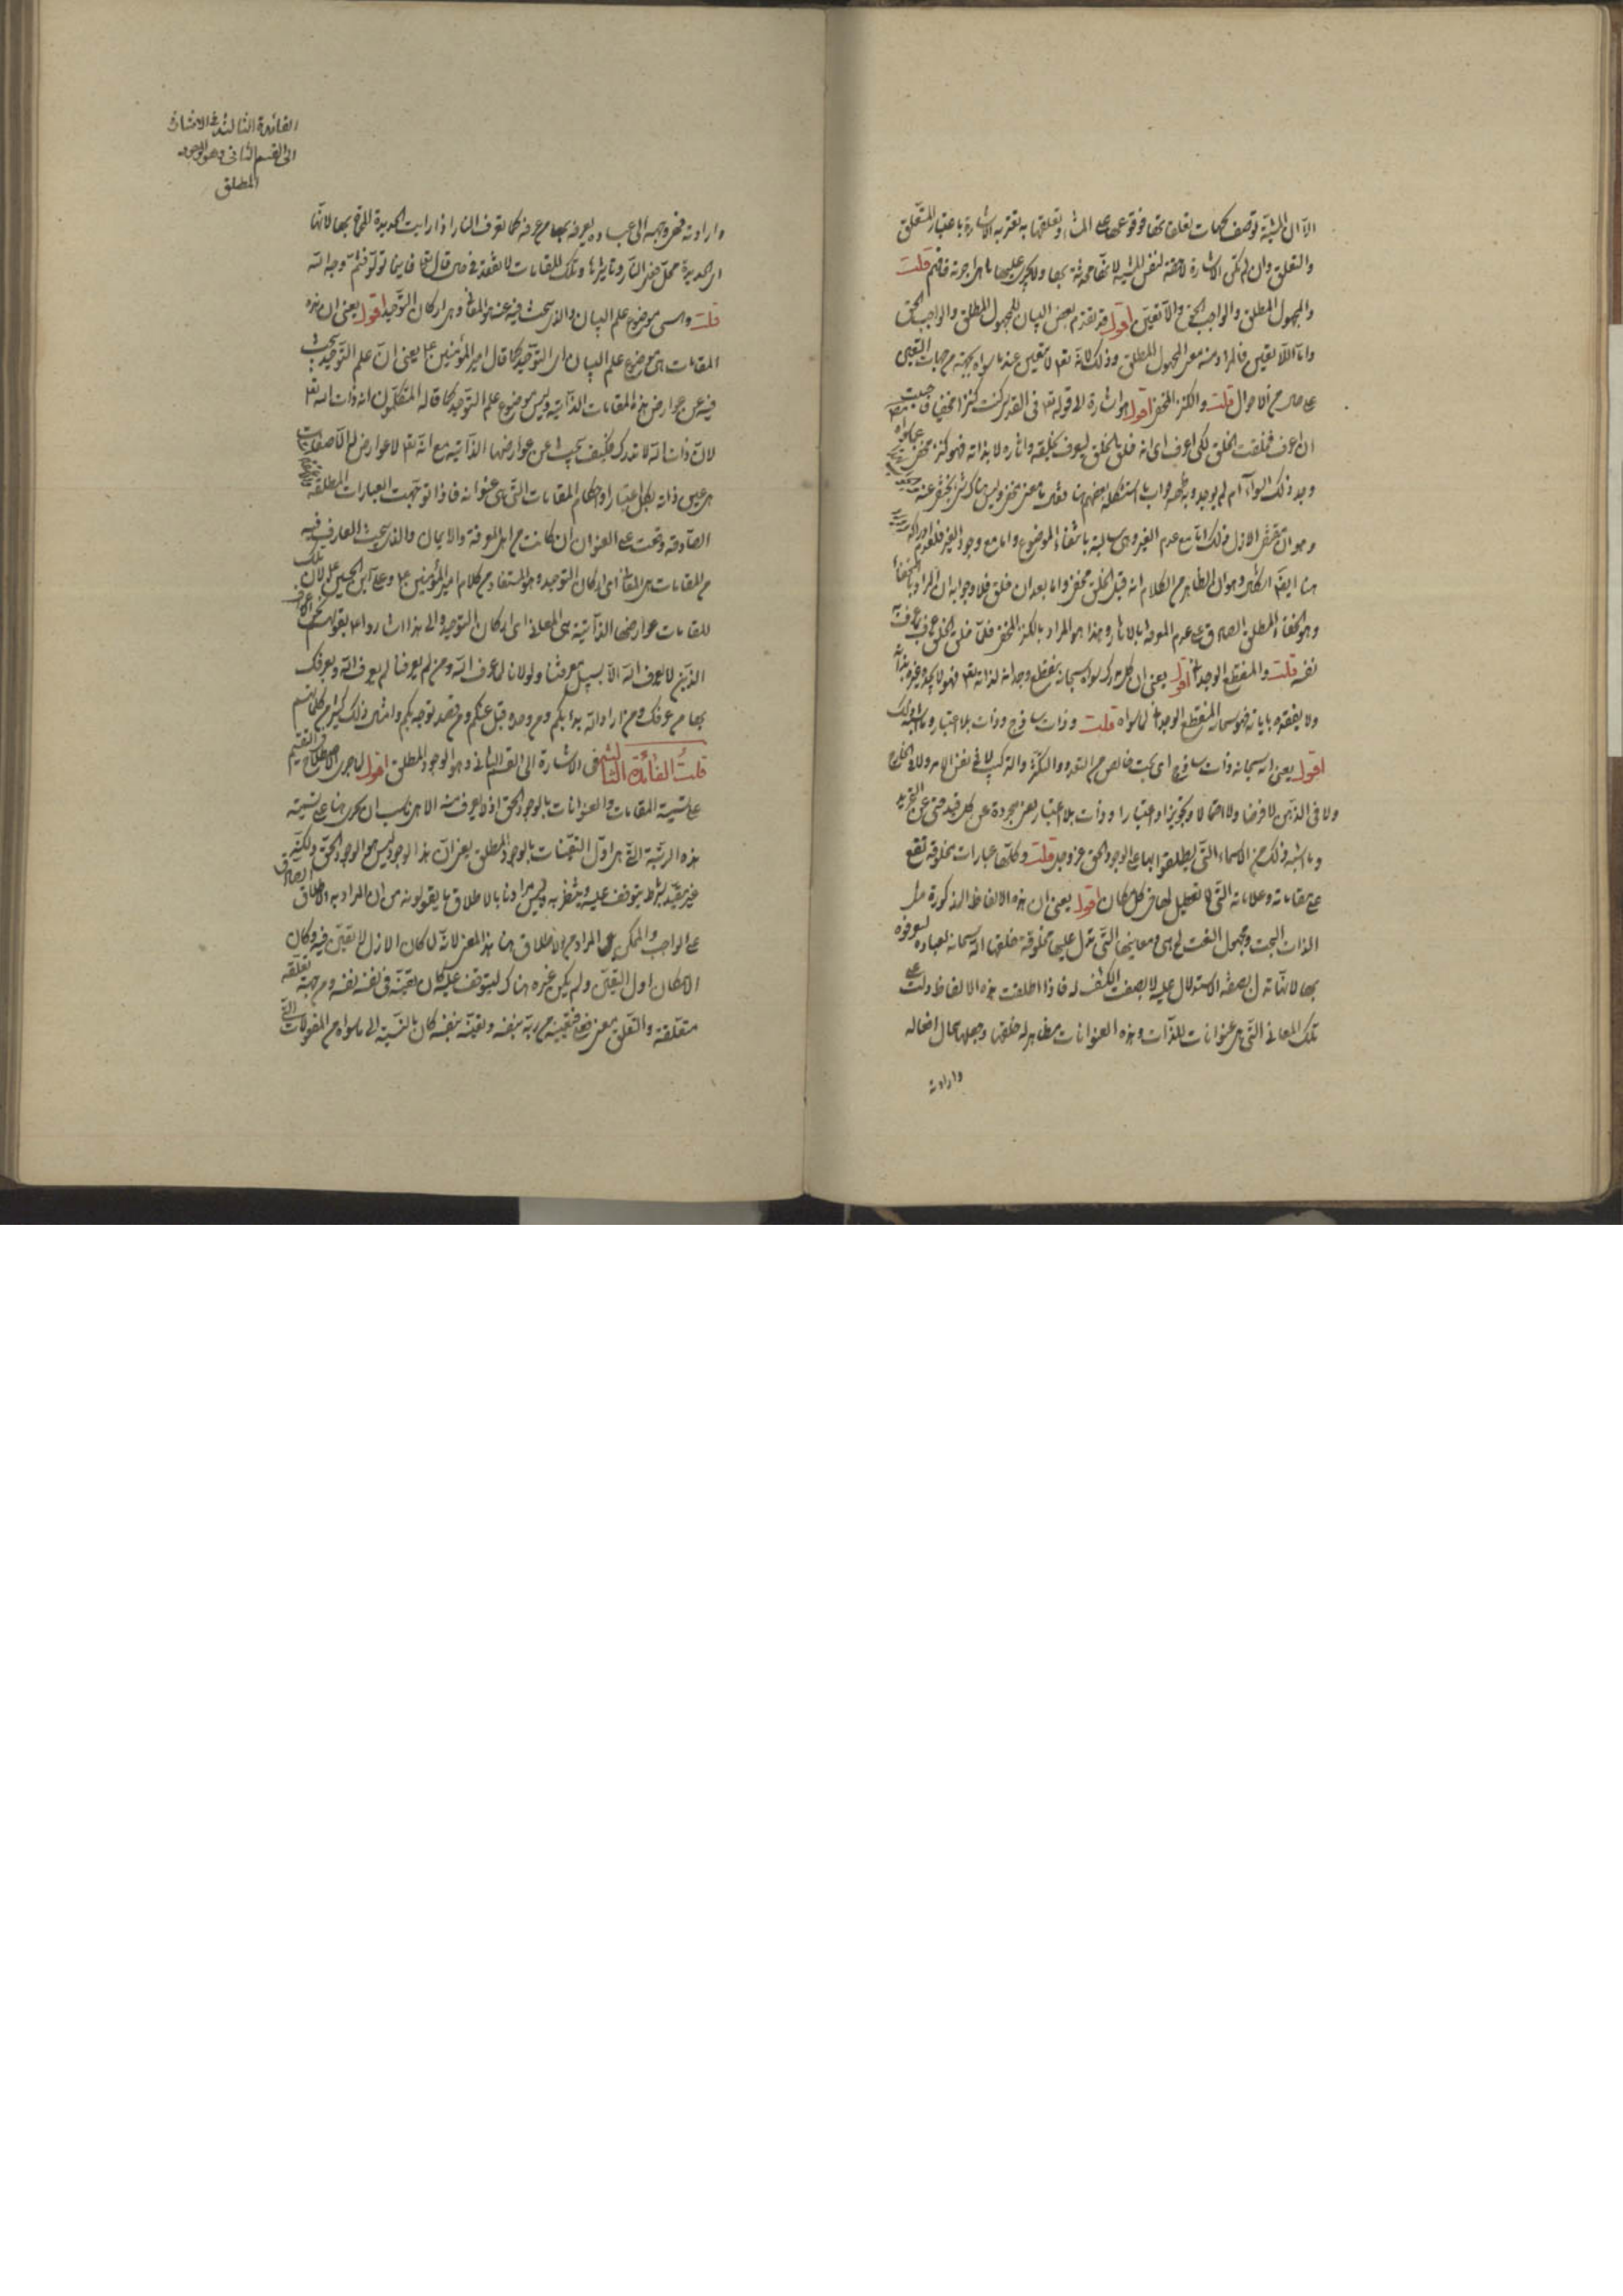 الا ان المشية توصف بجهات تعلقاتها فوقوعها على المشاء وتعلقها به يقتر به الاشارة باعتبار المتعلق
والتعلق وان لم تكن الاشارة لاحقة لنفس المشية لانها محدثة بها ولا يجرى عليها ما هى اجرته فافهم قلت
والمجهول المطلق والواجب الحق واللاتعين اقول قد تقدم بعض البيان للمجهول المطلق والواجب الحق
واما اللاتعين فالمراد منه معنى المجهول المطلق وذلك لانه تعالى لا يتعين عند ما سواه بجهة من جهات التعين
على حال من الاحوال قلت والكنز المخفى اقول هو اشارة الى قوله تعالى فى القدسى كنت كنزا مخفيا فاحببت
ان اعرف فخلقت الخلق لكى اعرف اى انه خلق الخلق ليعرف بخلقه واثاره لا بذاته فهو كنز مخفى
وهو ان مخفى الازل فذلك اما مع عدم الغير وهى سالبة بانتفاء الموضوع واما مع وجود الغير فلعدم ادراكه
هنا ايضا وهو ان الظاهر من الكلام انه قبل الخلق مخفى واما بعد ان خلق فلا وجوابه ان المراد بالخفاء
وهو الخفاء المطلق الصادق على عدم المعرفة بالاثار وهذا هو المراد بالكنز المخفى فلما خلق الخلق عرف بما عرف به
نفسه قلت والمنقطع الوجدانى اقول يعنى ان كل مدرك سواه سبحانه ينقطع وجدانه لذاته تعالى فهو لا يجده غيره بذاته
ولا يفقده باياته فهو سبحانه المنقطع الوجدانى لما سواه قلت وذات ساذج وذات بلا اعتبار وما اشبه ذلك
اقول يعنى انه سبحانه ذات ساذج اى بحت خالص من التعدد والتكثر والتركيب لا فى نفس الامر ولا فى الخارج
ولا فى الذهن لا فرضا ولا احتمالا وتجويزا واعتبارا وذات بلا اعتبار يعنى مجردة عن كل قيد حتى عن التجريد
وما اشبه ذلك من الاسماء التى يطلقونها على الوجود الحق عز وجل قلت وكلها عبارات مخلوقة تقع
على مقاماته وعلاماته التى لا تعطيل لها فى كل مكان اقول يعنى ان هذه الالفاظ المذكورة مثل
الذات البحت ومجهول النعت هى ومعانيها التى تدل عليها مخلوقة خلقها الله سبحانه لعباده ليعرفوه
بها لانها تدل بصفة الاستدلال عليه لا بصفة الكشف له فاذا اطلقت هذه الالفاظ دلت على
تلك المعانى التى هى عنوانات للذات وهذه العنوانات مظاهر له خلقها وجعلها محال افعاله
وارادته
الفائدة الثالثة فى الاشارة
الى القسم الثانى وهو الوجود
المطلق
وارادته فهى وجهه الى عباده يعرفه بها من عرفه كما تعرف النار اذا رايت الحديدة المحماة بها لانها
اى الحديدة محل فعل النار وتاثيرها وتلك المقامات لا تفقده فى مكان قال تعالى فاينما تولوا فثم وجه الله
قلت وهى موضوع علم البيان والذى يبحث فيه عنه هو المعانى وهى اركان التوحيد اقول يعنى ان هذه
المقامات هى موضوع علم البيان اى التوحيد كما قال امير المؤمنين ع يعنى ان علم التوحيد يبحث
فيه عن عوارض هذه المقامات الذاتية وليس موضوع علم التوحيد كما قاله المتكلمون انه ذات الله تعالى
لان ذات الله لا تدرك فكيف يبحث عن عوارضها الذاتية مع انه تعالى لا عوارض له الا صفات
هى عين ذاته بكل اعتبار واحكام المقامات التى هى عنوانه فاذا توجهت العبارات المطلقة
الصادقة وقعت على العنوان ان كانت من اهل المعرفة والايمان والذى يبحث العارف فيه
من المقامات هى المعانى اى اركان التوحيد وهو المستفاد من كلام امير المؤمنين ع وعلى ابن الحسين ع لان تلك
المقامات عوارضها الذاتية هى المعانى اى اركان التوحيد والى هذا اشاروا ع بقولهم نحن الاعراف
الذين لا يعرف الله الا بسبيل معرفتنا ولولانا لما عرف الله ومن لم يعرفنا لم يعرف الله ويعرفك
بها من عرفك ومن اراد الله بدا بكم ومن وحده قبل عنكم ومن قصده توجه بكم وامثال ذلك كثير من كلماتهم
قلت الفائدة الثالثة فى الاشارة الى القسم الثانى وهو الوجود المطلق اقول لما جرى الاصطلاح فى التقسيم
على تسمية المقامات والعنوانات بالوجود الحق اذ لا يعرف منه الا هى ناسب ان نجرى هنا على تسمية
هذه الرتبة التى هى اول التعينات بالوجود المطلق يعنى ان هذا الوجود ليس هو الوجود الحق ولكنه
غير مقيد بشرط يتوقف عليه وينتظر به وليس مرادنا بالاطلاق ما يقولونه من ان المراد به الاطلاق الصادق
على الواجب والممكن بل المراد من الاطلاق هنا هذا المعنى لانه لما كان الازل لا تعين فيه وكان
الامكان اول التعين ولم يكن غيره هناك ليتوقف عليه كان تعينه فى نفسه بنفسه ومن جهة تعلقه
متعلقه والتعلق بمعنى تعينه من ربه بنفسه وتعينه بنفسه كان بالنسبة الى ما سواه من المفعولات التى